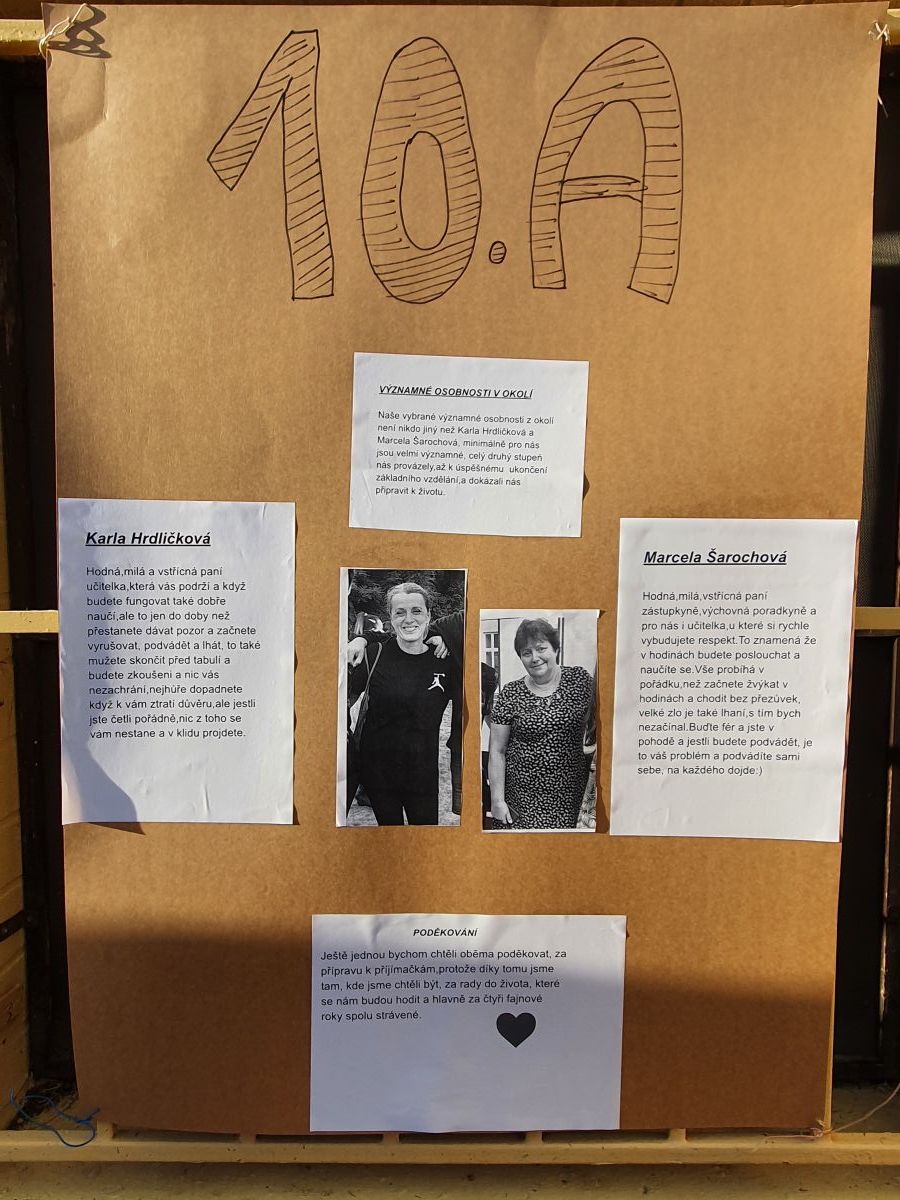 10.A
VÝZNAMNÉ OSOBNOSTI V OKOLÍ
Naše vybrané významné osobnosti z okolí
není nikdo jiný než Karla Hrdličková a
Marcela Šarochová, minimálně pro nás
jsou velmi významné, celý druhý stupeň
nás provázely,až k úspěšnému ukončení
základního vzdělání,a dokázali nás
připravit k životu.
Karla Hrdličková
Hodná,milá a vstřícná paní
učitelka,která vás podrží a když
budete fungovat také dobře
naučí,ale to jen do doby než
přestanete dávat pozor a začnete
vyrušovat, podvádět a lhát, to také
mužete skončit před tabulí a
budete zkoušeni a nic vás
nezachrání,nejhůře dopadnete
když k vám ztratí důvěru,ale jestli
jste četli pořádně,nic z toho se
vám nestane a v klidu projdete.
Marcela Šarochová
Hodná,milá,vstřícná paní
zástupkyně,výchovná poradkyně a
pro nás i učitelka,u které si rychle
vybudujete respekt.To znamená že
v hodinách budete poslouchat a
naučíte se.Vše probíhá v
pořádku,než začnete žvýkat v
hodinách a chodit bez přezůvek,
velké zlo je také lhaní,s tím bych
nezačínal.Buďte fér a jste v
pohodě a jestli budete podvádět, je
to váš problém a podvádíte sami
sebe, na každého dojde:)
PODĚKOVÁNÍ
Ještě jednou bychom chtěli oběma poděkovat, za
přípravu k příjímačkám,protože díky tomu jsme
tam, kde jsme chtěli být, za rady do života, které
se nám budou hodit a hlavně za čtyři fajnové
roky spolu strávené.